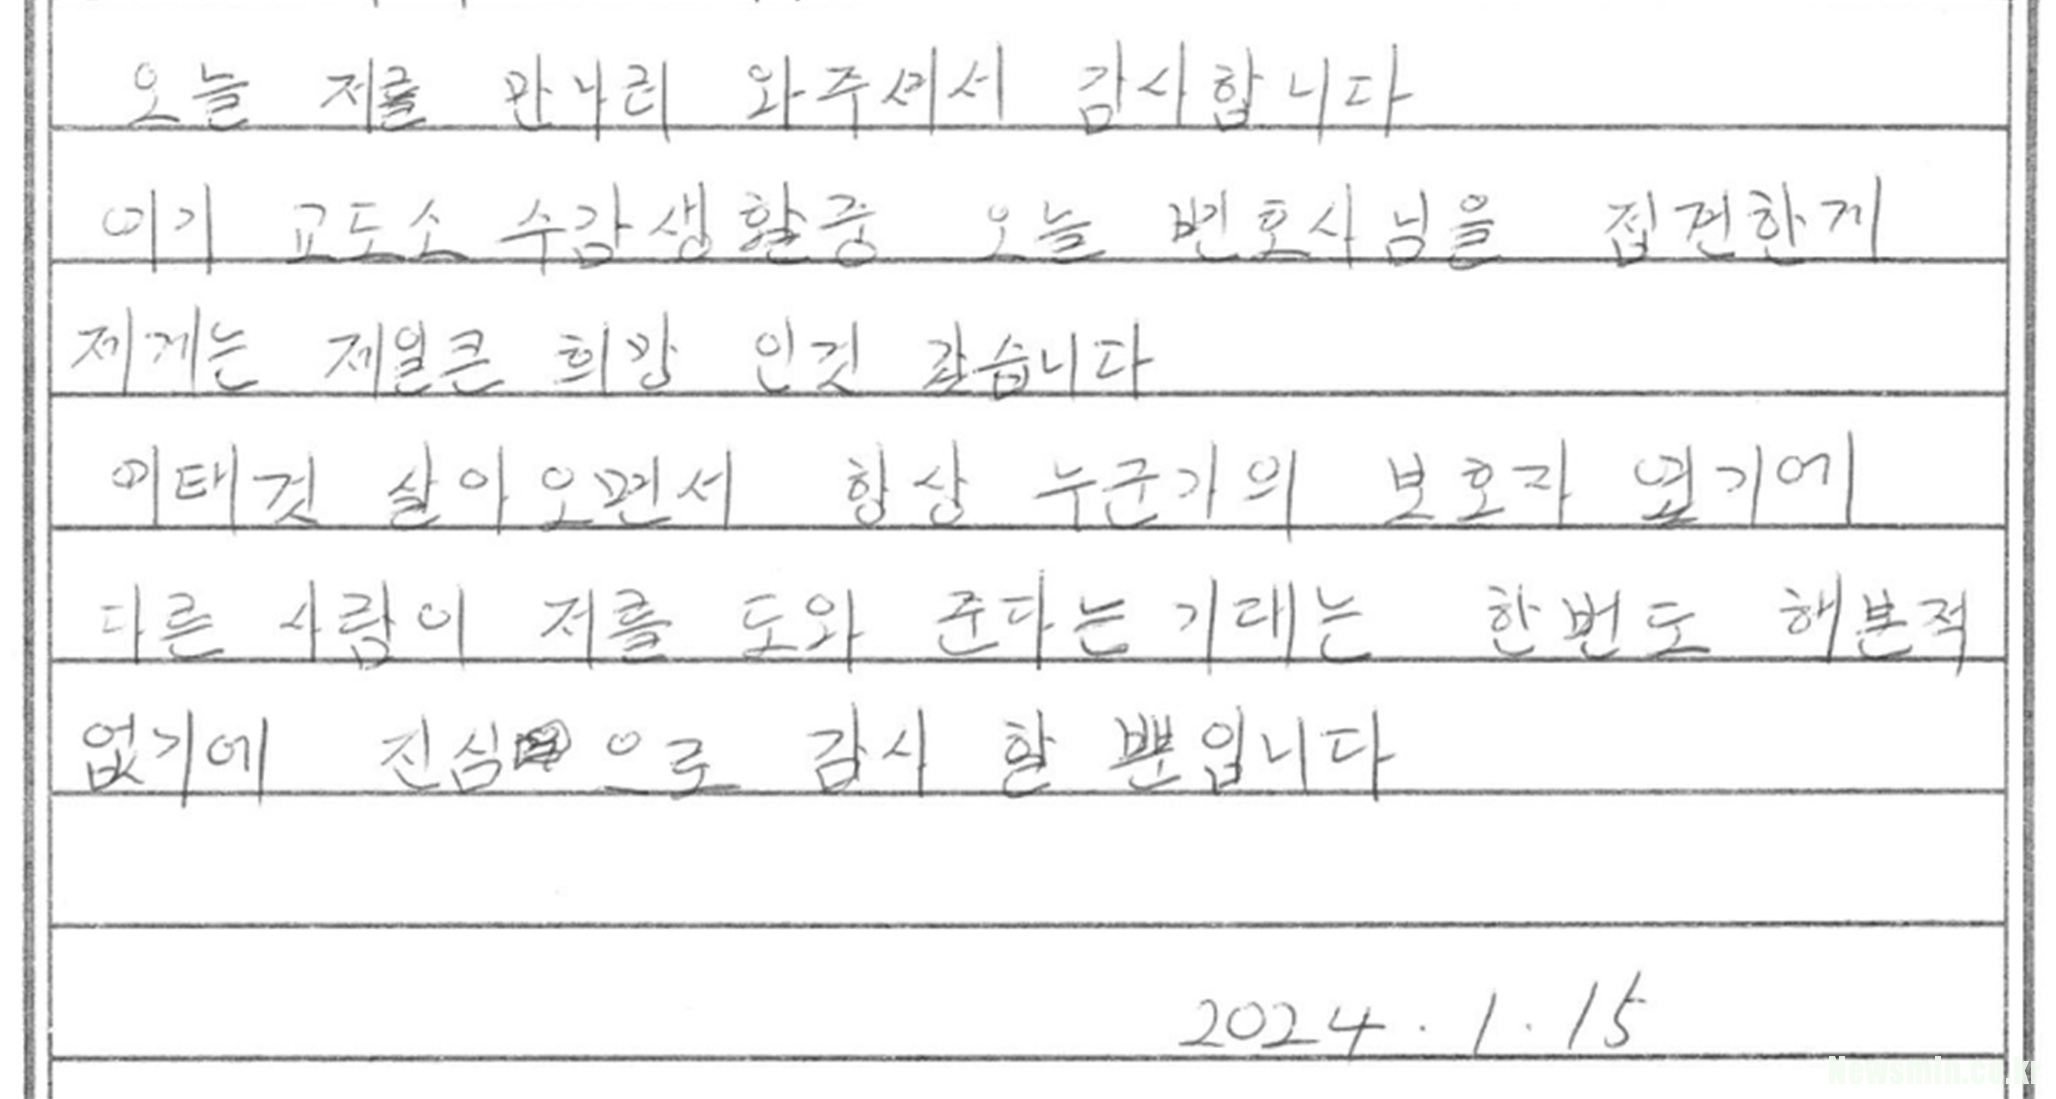 오늘 저를 만나러 와주셔서 감사합니다
여기 교도소 수감생활중 오늘 변호사님을 접견한게
저게는 제일큰 희망 인것 같습니다
여태것 살아오면서 항상 누군가의 보호자 였기에
다른 사람이 저를 도와 준다는 기대는 한번도 해본적
없기에 진심으로 감사 할 뿐입니다
2024. 1. 15
Newsmin.co.kr